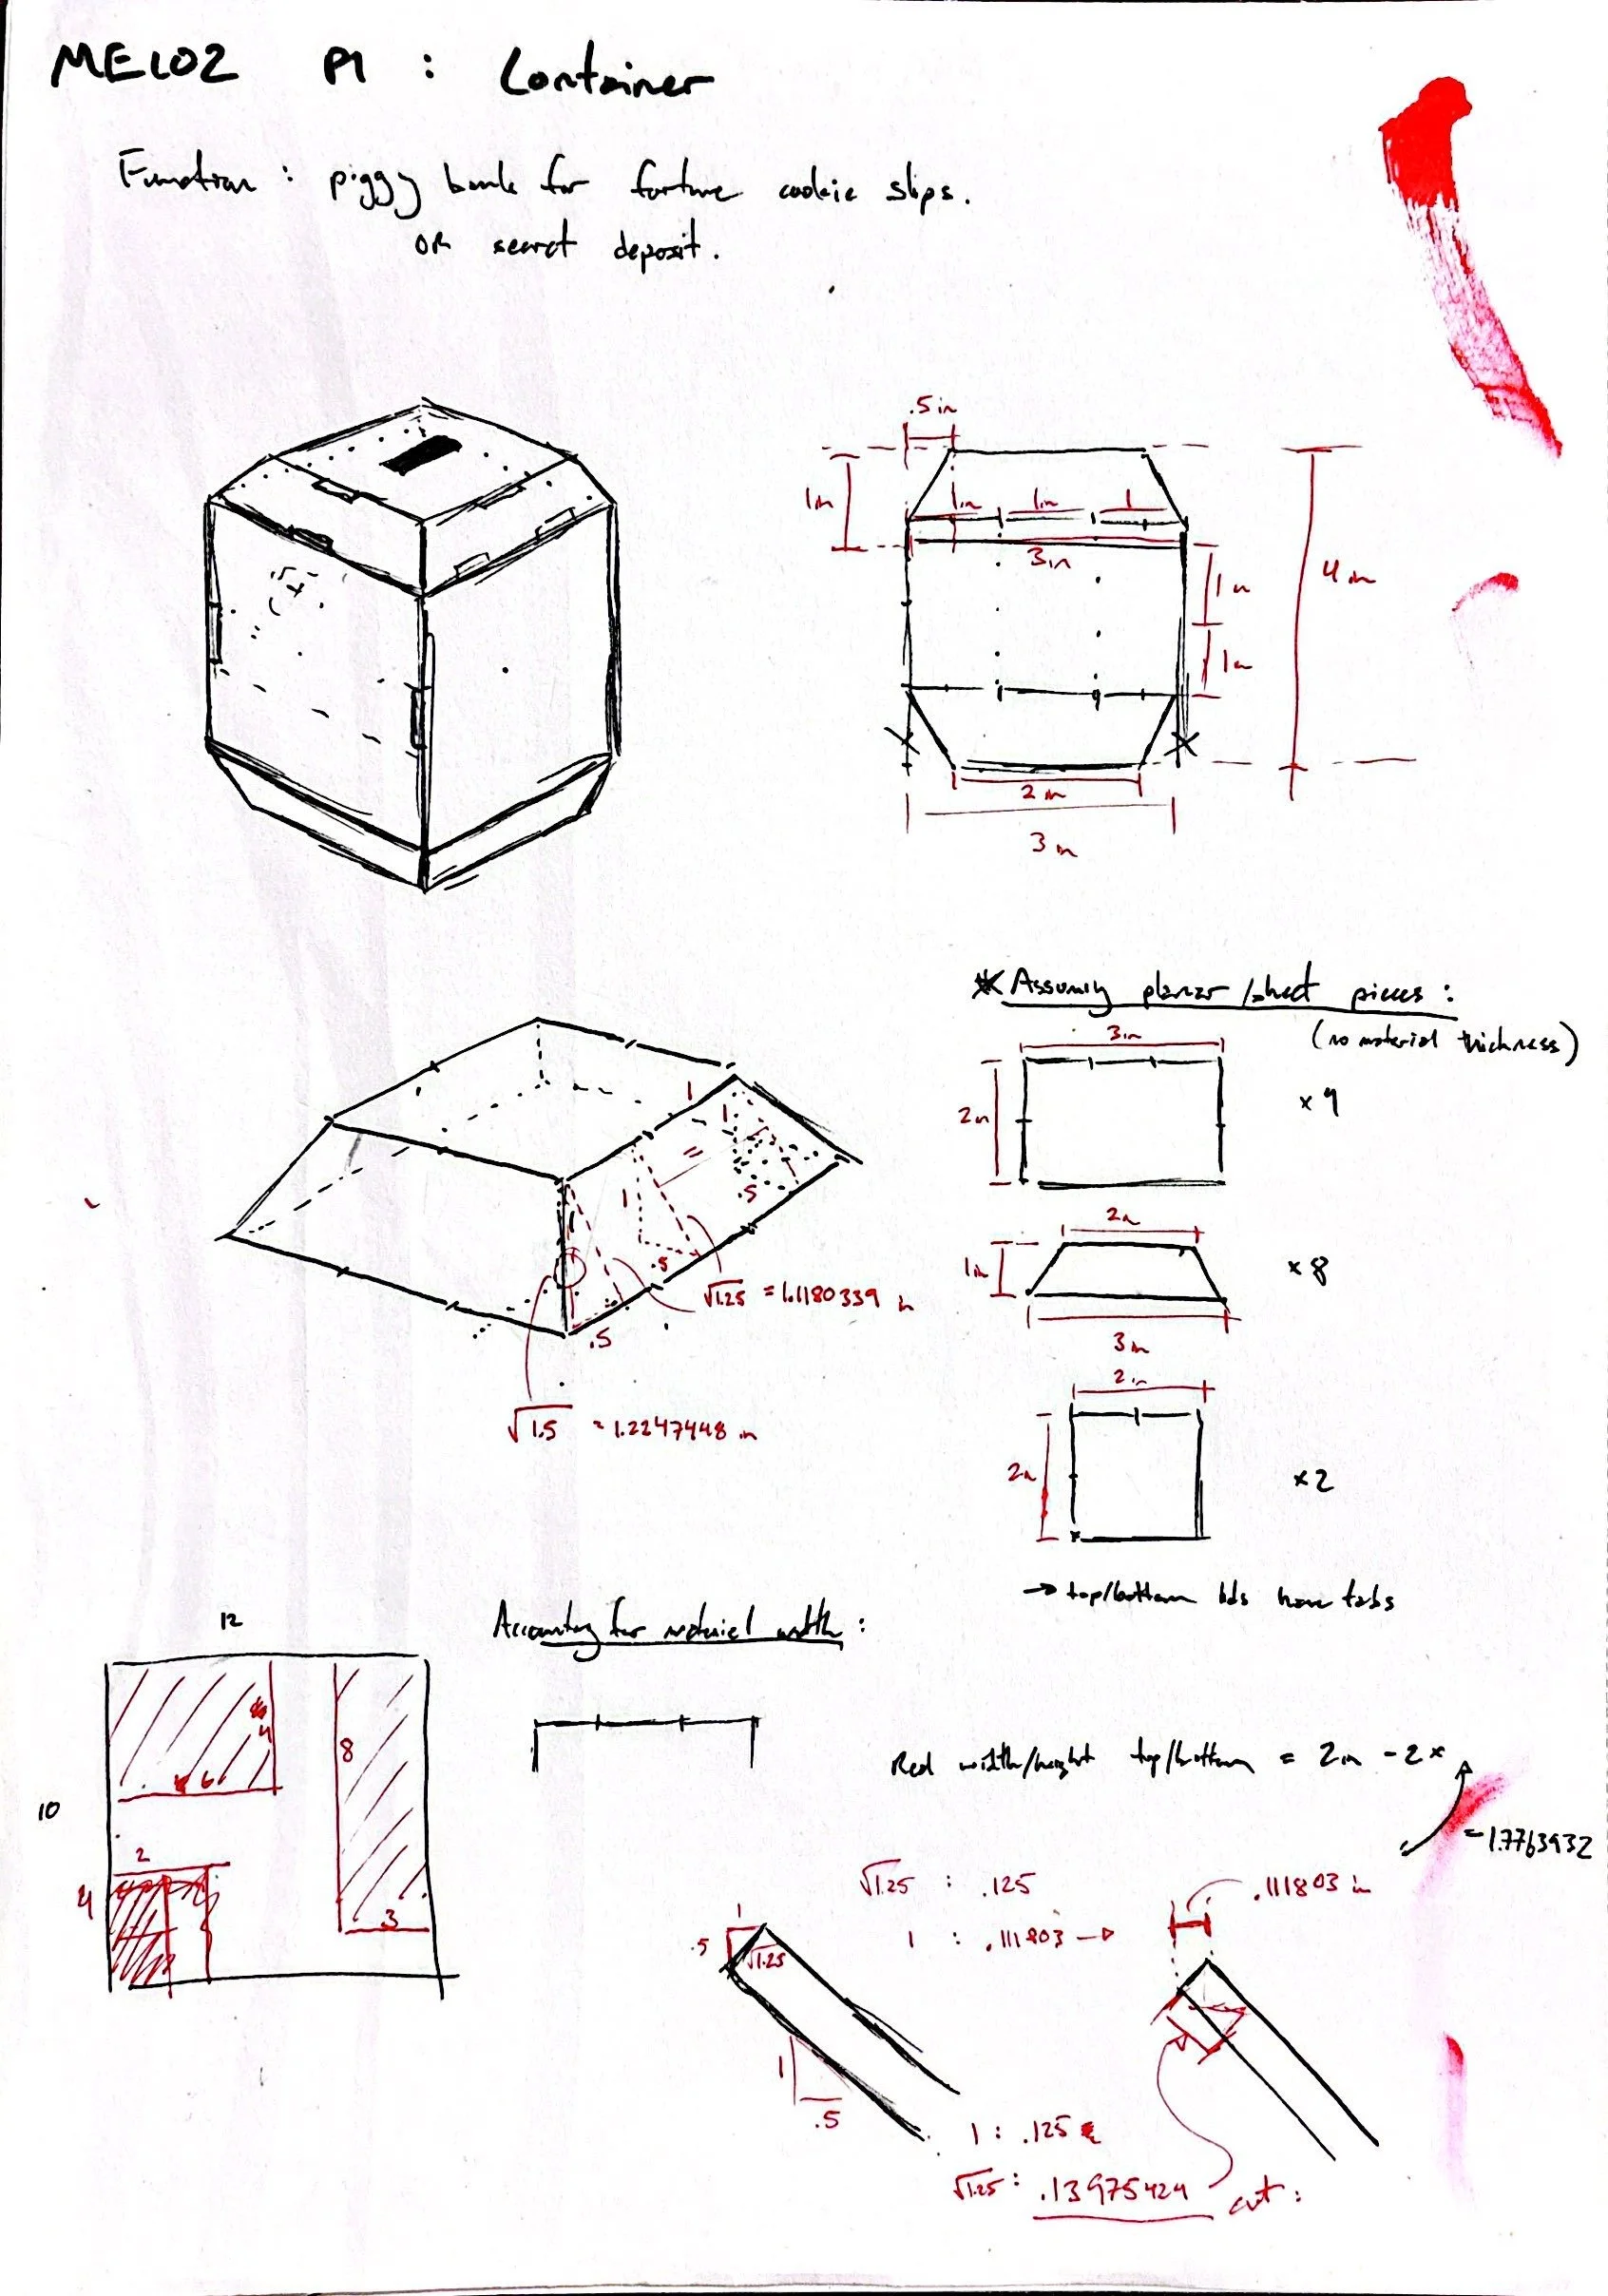 ME102 P1 : Container
Function : piggy bank for fortune cookie slips.
OR secret deposit.
.5 in
1in
1in 1in 1
3in
1in
1in
4 in
2 in
3 in
* Assuming planar / sheet pieces :
(no material thickness)
3in
2in
x 4
2in
1in
x 8
3in
2in
2in
x 2
→ top/bottom lids have tabs
1
1
=
1
.5
.5
.5
√1.25 = 1.1180339 in
√1.5 = 1.2247448 in
12
10
4
6
8
3
2
4
Accounting for material width :
Real width/height top/bottom = 2in - 2x
= 1.7763932
√1.25 : .125
1 : .111803 →
.111803 in
1
.5
√1.25
1
.5
1 : .125
√1.25 : .13975424
cut :